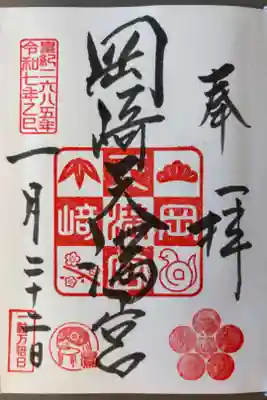 奉拝
岡崎天満宮
岡崎
天満宮
皇紀二六八五年
令和七年乙巳
一月二十二日
一粒万倍日